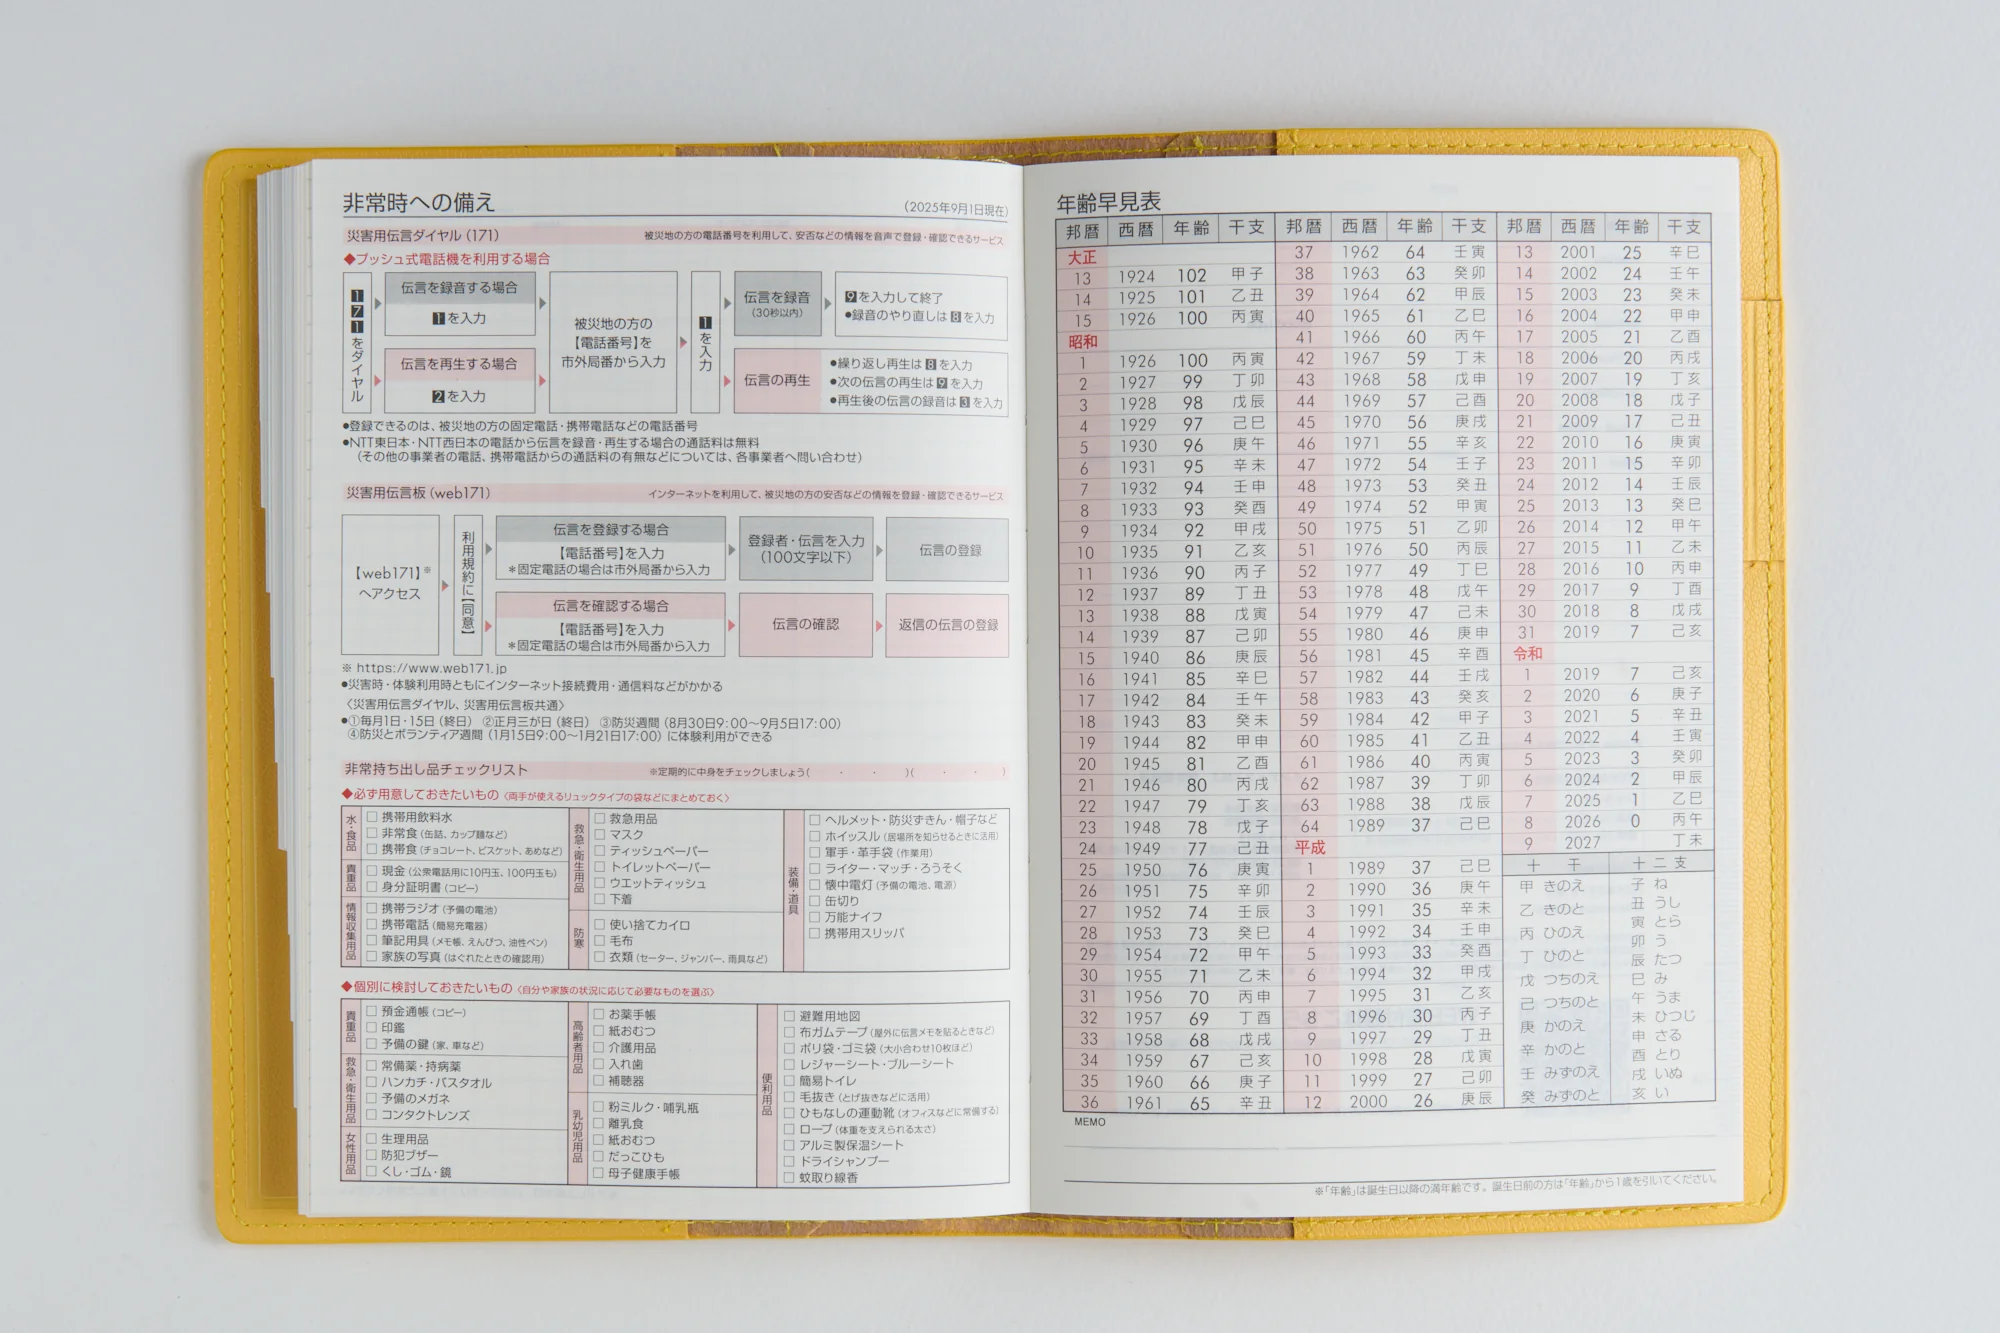 非常時への備え
(2025年9月1日現在)
災害用伝言ダイヤル(171) 被災地の方の電話番号を利用して、安否などの情報を音声で登録・確認できるサービス
◆プッシュ式電話機を利用する場合
171をダイヤル
伝言を録音する場合
1を入力
伝言を再生する場合
2を入力
被災地の方の
【電話番号】を
市外局番から入力
1を入力
伝言を録音
(30秒以内)
9を入力して終了
●録音のやり直しは8を入力
伝言の再生
●繰り返し再生は8を入力
●次の伝言の再生は9を入力
●再生後の伝言の録音は3を入力
●登録できるのは、被災地の方の固定電話・携帯電話などの電話番号
●NTT東日本・NTT西日本の電話から伝言を録音・再生する場合の通話料は無料
(その他の事業者の電話、携帯電話からの通話料の有無などについては、各事業者へ問い合わせ)
災害用伝言板(web171) インターネットを利用して、被災地の方の安否などの情報を登録・確認できるサービス
【web171】※
へアクセス
利用規約に【同意】
伝言を登録する場合
【電話番号】を入力
*固定電話の場合は市外局番から入力
登録者・伝言を入力
(100文字以下)
伝言の登録
伝言を確認する場合
【電話番号】を入力
*固定電話の場合は市外局番から入力
伝言の確認
返信の伝言の登録
※ https://www.web171.jp
●災害時・体験利用時ともにインターネット接続費用・通信料などがかかる
〈災害用伝言ダイヤル、災害用伝言板共通〉
●①毎月1日・15日(終日) ②正月三が日(終日) ③防災週間(8月30日9:00〜9月5日17:00)
④防災とボランティア週間(1月15日9:00〜1月21日17:00)に体験利用ができる
非常持ち出し品チェックリスト ※定期的に中身をチェックしましょう( ・ ・ )( ・ ・ )
◆必ず用意しておきたいもの〈両手が使えるリュックタイプの袋などにまとめておく〉
水・食品
□ 携帯用飲料水
□ 非常食(缶詰、カップ麺など)
□ 携帯食(チョコレート、ビスケット、あめなど)
貴重品
□ 現金(公衆電話用に10円玉、100円玉も)
□ 身分証明書(コピー)
情報収集用品
□ 携帯ラジオ(予備の電池)
□ 携帯電話(簡易充電器)
□ 筆記用具(メモ帳、えんぴつ、油性ペン)
□ 家族の写真(はぐれたときの確認用)
救急・衛生用品
□ 救急用品
□ マスク
□ ティッシュペーパー
□ トイレットペーパー
□ ウエットティッシュ
□ 下着
防寒
□ 使い捨てカイロ
□ 毛布
□ 衣類(セーター、ジャンパー、雨具など)
装備・道具
□ ヘルメット・防災ずきん・帽子など
□ ホイッスル(居場所を知らせるときに活用)
□ 軍手・革手袋(作業用)
□ ライター・マッチ・ろうそく
□ 懐中電灯(予備の電池、電源)
□ 缶切り
□ 万能ナイフ
□ 携帯用スリッパ
◆個別に検討しておきたいもの〈自分や家族の状況に応じて必要なものを選ぶ〉
貴重品
□ 預金通帳(コピー)
□ 印鑑
□ 予備の鍵(家、車など)
救急・衛生用品
□ 常備薬・持病薬
□ ハンカチ・バスタオル
□ 予備のメガネ
□ コンタクトレンズ
女性用品
□ 生理用品
□ 防犯ブザー
□ くし・ゴム・鏡
高齢者用品
□ お薬手帳
□ 紙おむつ
□ 介護用品
□ 入れ歯
□ 補聴器
乳幼児用品
□ 粉ミルク・哺乳瓶
□ 離乳食
□ 紙おむつ
□ だっこひも
□ 母子健康手帳
便利用品
□ 避難用地図
□ 布ガムテープ(屋外に伝言メモを貼るときなど)
□ ポリ袋・ゴミ袋(大小合わせ10枚ほど)
□ レジャーシート・ブルーシート
□ 簡易トイレ
□ 毛抜き(とげ抜きなどに活用)
□ ひもなしの運動靴(オフィスなどに常備する)
□ ロープ(体重を支えられる太さ)
□ アルミ製保温シート
□ ドライシャンプー
□ 蚊取り線香
年齢早見表
邦暦 西暦 年齢 干支
大正
13 1924 102 甲子
14 1925 101 乙丑
15 1926 100 丙寅
昭和
1 1926 100 丙寅
2 1927 99 丁卯
3 1928 98 戊辰
4 1929 97 己巳
5 1930 96 庚午
6 1931 95 辛未
7 1932 94 壬申
8 1933 93 癸酉
9 1934 92 甲戌
10 1935 91 乙亥
11 1936 90 丙子
12 1937 89 丁丑
13 1938 88 戊寅
14 1939 87 己卯
15 1940 86 庚辰
16 1941 85 辛巳
17 1942 84 壬午
18 1943 83 癸未
19 1944 82 甲申
20 1945 81 乙酉
21 1946 80 丙戌
22 1947 79 丁亥
23 1948 78 戊子
24 1949 77 己丑
25 1950 76 庚寅
26 1951 75 辛卯
27 1952 74 壬辰
28 1953 73 癸巳
29 1954 72 甲午
30 1955 71 乙未
31 1956 70 丙申
32 1957 69 丁酉
33 1958 68 戊戌
34 1959 67 己亥
35 1960 66 庚子
36 1961 65 辛丑
邦暦 西暦 年齢 干支
37 1962 64 壬寅
38 1963 63 癸卯
39 1964 62 甲辰
40 1965 61 乙巳
41 1966 60 丙午
42 1967 59 丁未
43 1968 58 戊申
44 1969 57 己酉
45 1970 56 庚戌
46 1971 55 辛亥
47 1972 54 壬子
48 1973 53 癸丑
49 1974 52 甲寅
50 1975 51 乙卯
51 1976 50 丙辰
52 1977 49 丁巳
53 1978 48 戊午
54 1979 47 己未
55 1980 46 庚申
56 1981 45 辛酉
57 1982 44 壬戌
58 1983 43 癸亥
59 1984 42 甲子
60 1985 41 乙丑
61 1986 40 丙寅
62 1987 39 丁卯
63 1988 38 戊辰
64 1989 37 己巳
平成
1 1989 37 己巳
2 1990 36 庚午
3 1991 35 辛未
4 1992 34 壬申
5 1993 33 癸酉
6 1994 32 甲戌
7 1995 31 乙亥
8 1996 30 丙子
9 1997 29 丁丑
10 1998 28 戊寅
11 1999 27 己卯
12 2000 26 庚辰
邦暦 西暦 年齢 干支
13 2001 25 辛巳
14 2002 24 壬午
15 2003 23 癸未
16 2004 22 甲申
17 2005 21 乙酉
18 2006 20 丙戌
19 2007 19 丁亥
20 2008 18 戊子
21 2009 17 己丑
22 2010 16 庚寅
23 2011 15 辛卯
24 2012 14 壬辰
25 2013 13 癸巳
26 2014 12 甲午
27 2015 11 乙未
28 2016 10 丙申
29 2017 9 丁酉
30 2018 8 戊戌
31 2019 7 己亥
令和
1 2019 7 己亥
2 2020 6 庚子
3 2021 5 辛丑
4 2022 4 壬寅
5 2023 3 癸卯
6 2024 2 甲辰
7 2025 1 乙巳
8 2026 0 丙午
9 2027 丁未
十干
甲 きのえ
乙 きのと
丙 ひのえ
丁 ひのと
戊 つちのえ
己 つちのと
庚 かのえ
辛 かのと
壬 みずのえ
癸 みずのと
十二支
子 ね
丑 うし
寅 とら
卯 う
辰 たつ
巳 み
午 うま
未 ひつじ
申 さる
酉 とり
戌 いぬ
亥 い
MEMO
※「年齢」は誕生日以降の満年齢です。誕生日前の方は「年齢」から1歳を引いてください。